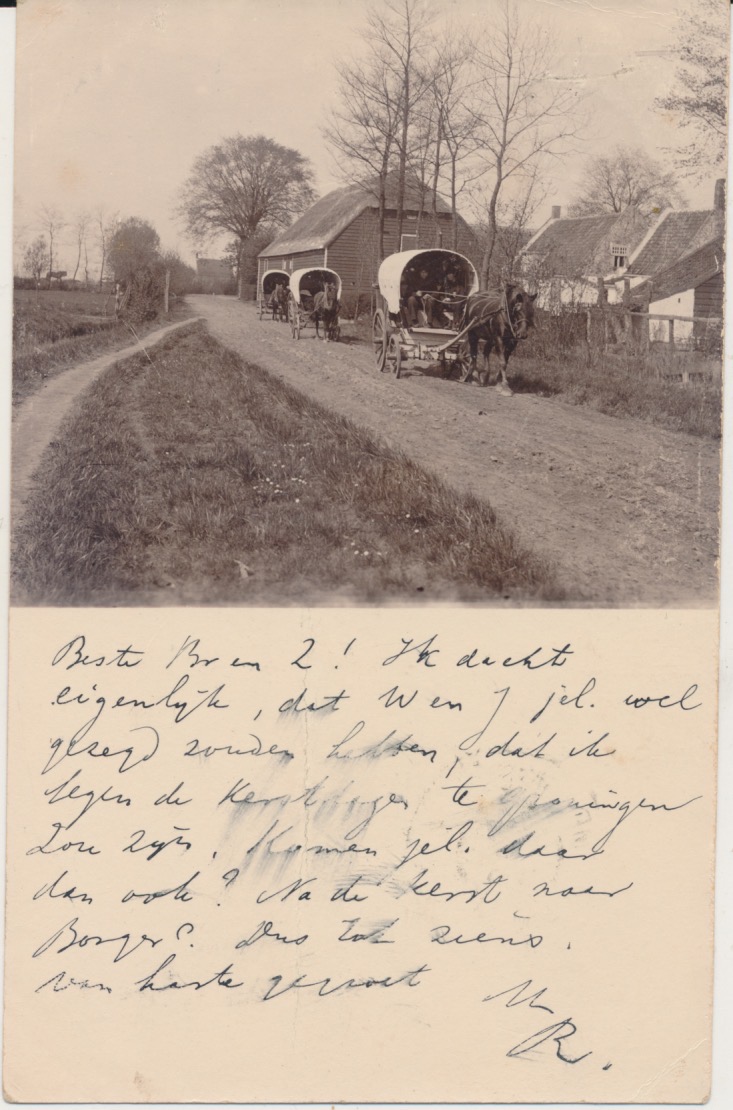 Beste Br en Z! Ik dacht
eigenlijk, dat W en J jel. wel
gezegd zouden hebben, dat ik
tegen de Kerstdagen te Groningen
zou zijn. Komen jel. daar
dan ook? Na de Kerst naar
Borger? Dus tot ziens.
van harte gegroet M
R.